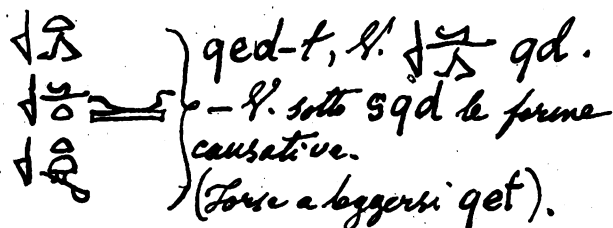 qed-t, V. qd.
– V. sotto sqd le forme
causative.
(Forse a leggersi qet).